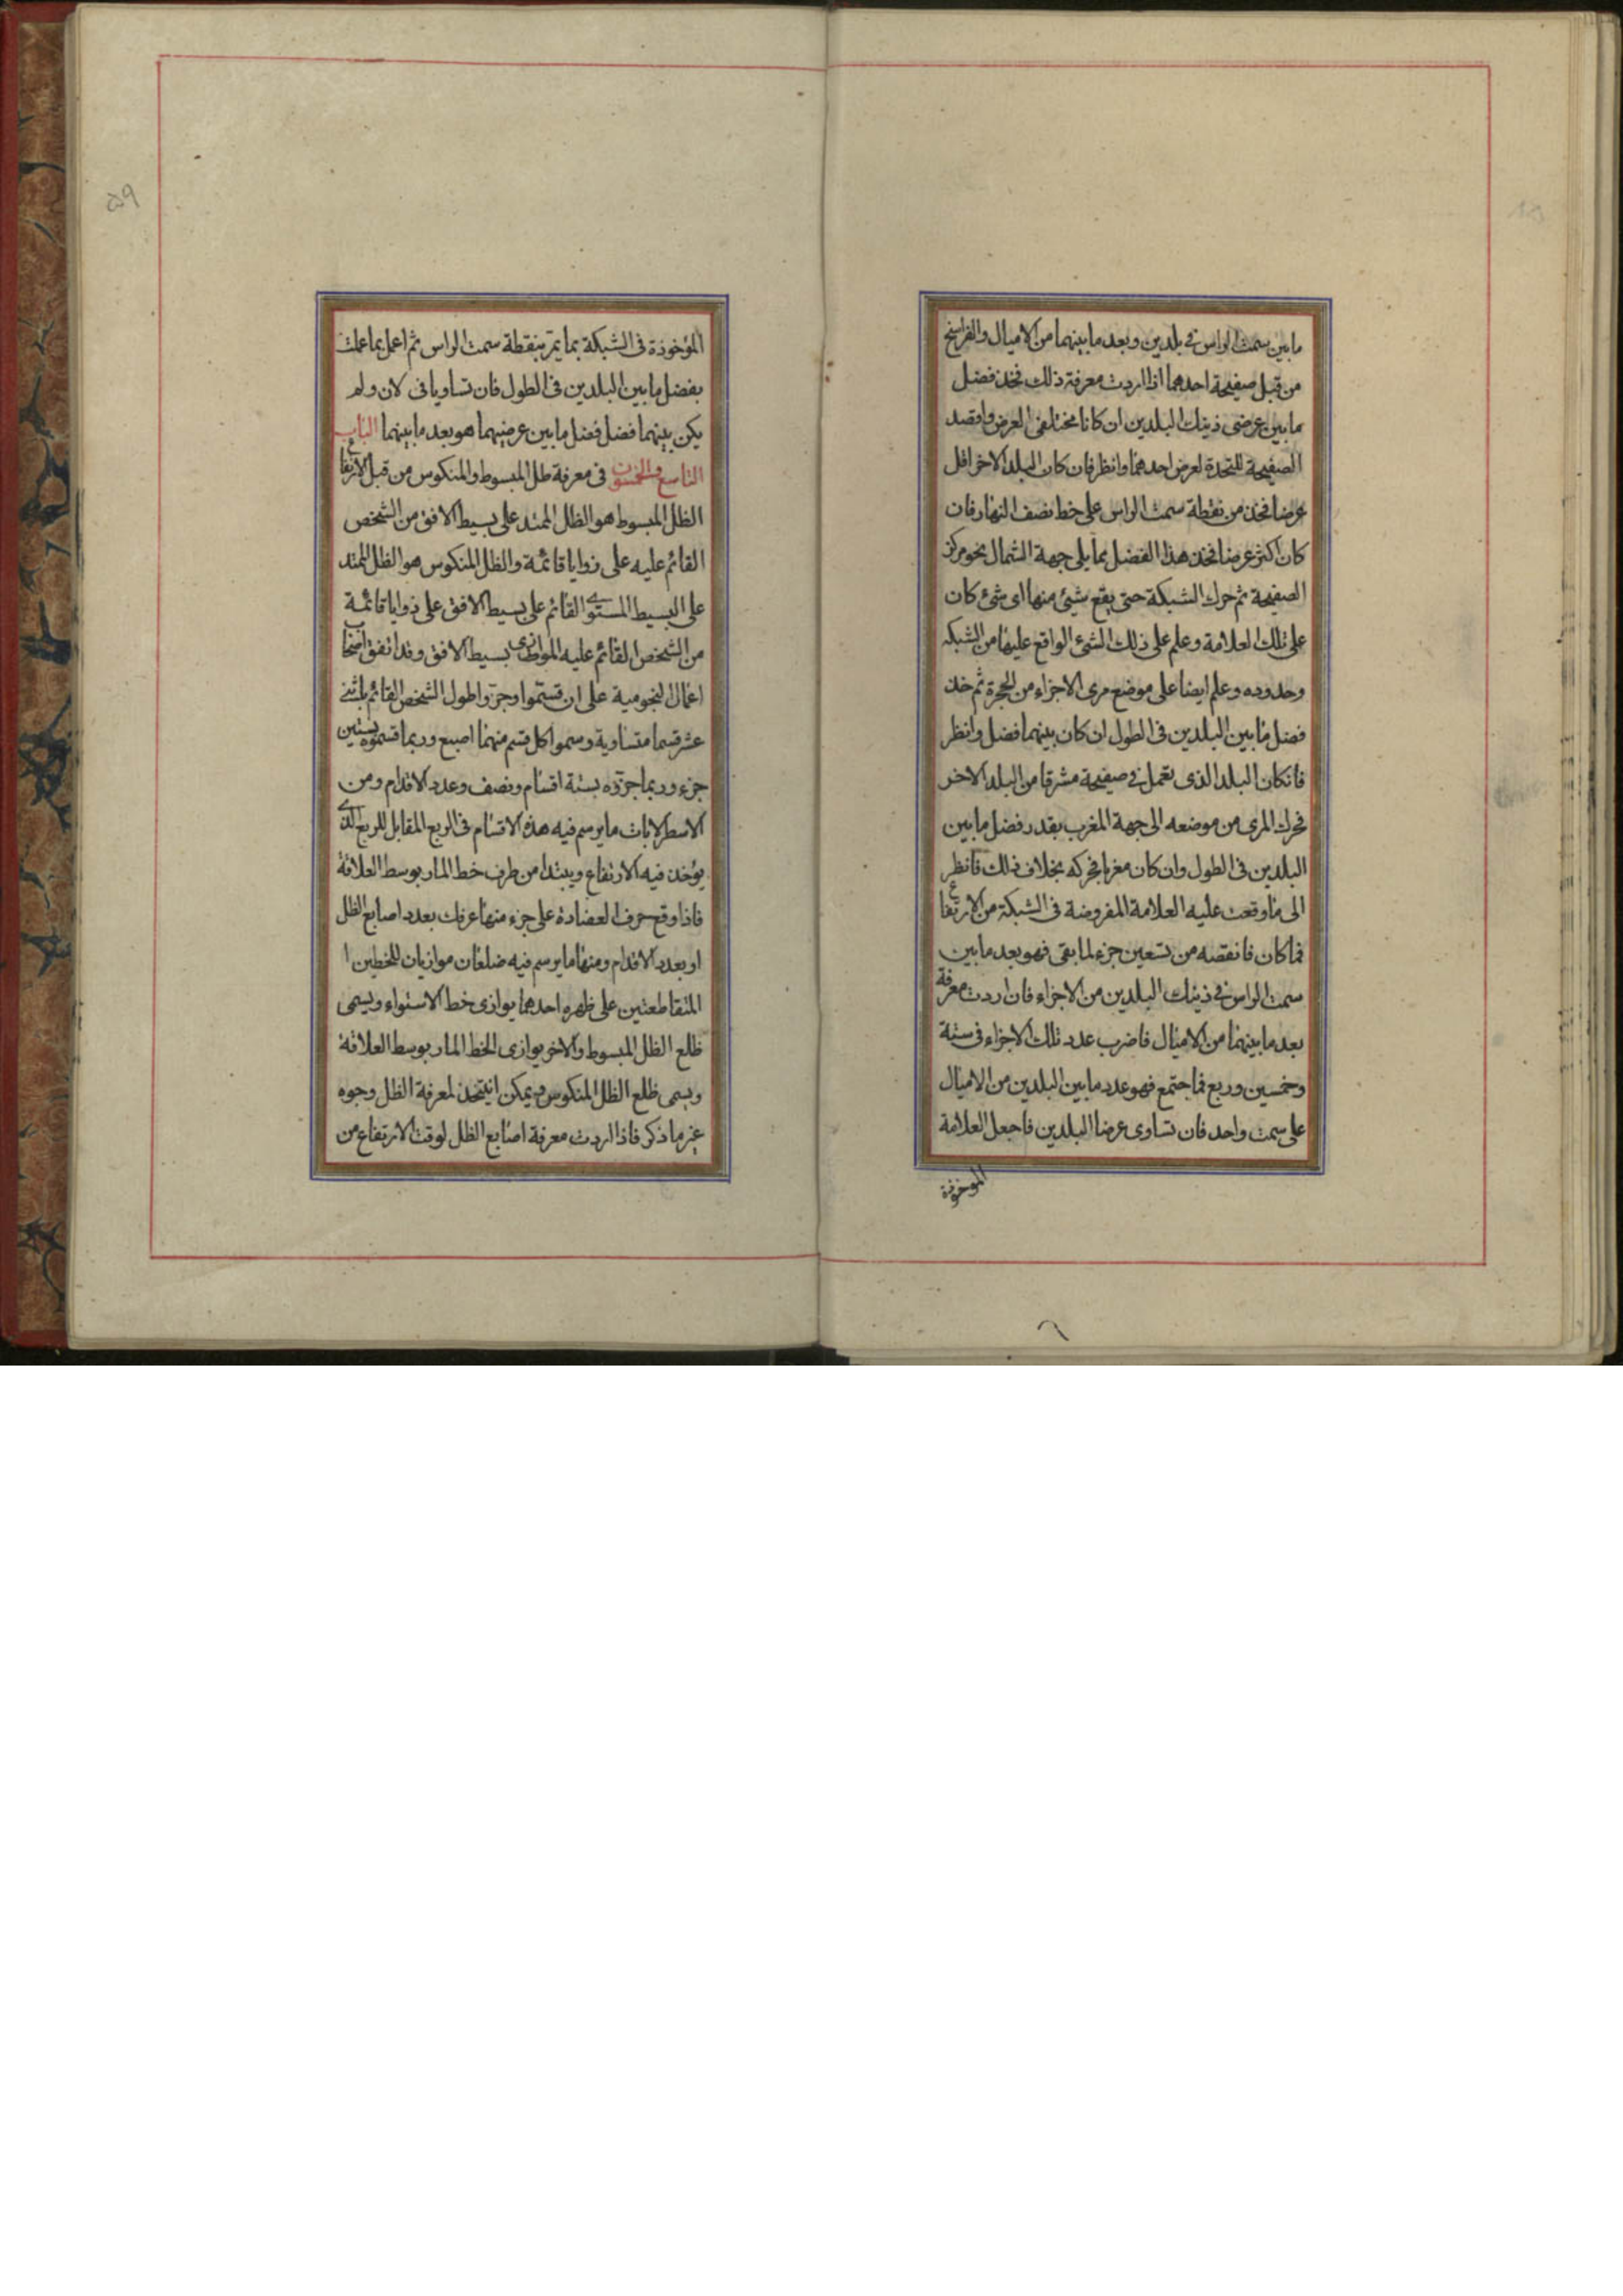 ما بين سمت الراس فى بلدين وبعد ما بينهما من الاميال والفراسخ
من قبل صفيحة احدهما اذا اردت معرفة ذلك فخذ فضل
ما بين عرضى ذينك البلدين ان كانا مختلفى العرض واقصد
الصفيحة المتخذة لعرض احدهما وانظر فان كان البلد الاخر اقل
عرضا فخذ من نقطة سمت الراس على خط نصف النهار فان
كان اكثر عرضا فخذ هذا الفضل مما يلى جهة الشمال نحو مركز
الصفيحة ثم حرك الشبكة حتى يقع شيئ منها اى شئ كان
على تلك العلامة وعلم على ذلك الشئ الواقع عليها من الشبكه
وحدوده وعلم ايضا على موضع مرى الاجزاء من الحجرة ثم خذ
فضل ما بين البلدين فى الطول ان كان بينهما فضل وانظر
فانكان البلد الذى تعمل فى صفيحة مشرقا من البلد الاخر
فحرك المرى من موضعه الى جهة المغرب بقدر فضل ما بين
البلدين فى الطول وان كان مغربا فحركه بخلاف ذلك فانظر
الى ما وقعت عليه العلامة المفروضة فى الشبكة من الارتفاع
فما كان فانقصه من تسعين جزء لما بقى فهو بعد ما بين
سمت الراس فى ذينك البلدين من الاجزاء فان اردت معرفة
بعد ما بينهما من الاميال فاضرب عدد تلك الاجزاء فى ستة
وخمسين وربع فما اجتمع فهو عدد ما بين البلدين من الاميال
على سمت واحد فان تساوى عرضا البلدين فاجعل العلامة
الموخوذة
٥٩
المؤخوذة فى الشبكة بما يمر بنقطة سمت الراس ثم اعمل بما عملت
بفضل ما بين البلدين فى الطول فان تساويا فى لان ولم
يكن بينهما فضل فضل ما بين عرضيهما هو بعد ما بينهما الباب
التاسع والخمسون فى معرفة ظل المبسوط والمنكوس من قبل الارتفاع
الظل المبسوط هو الظل الممتد على بسيط الافق من الشخص
القائم عليه على زوايا قائمة والظل المنكوس هو الظل الممتد
على البسيط المستوى القائم على بسيط الافق على زوايا قائمة
من الشخص القائم عليه الموازى بسيط الافق وقد اتفق اصحاب
اعمال النجومية على ان قسموا وجزوا طول الشخص القائم باثنى
عشر قسما متساوية وسموا كل قسم منهما اصبع وربما قسموه بستين
جزء وربما جزوه بستة اقسام ونصف وعدد الاقدام ومن
الاسطرلابات ما يرسم فيه هذه الاقسام فى الربع المقابل للربع الذى
يؤخذ فيه الارتفاع ويبتدا من طرف خط المار بوسط العلاقة
فاذا وقع حرف العضادة على جزء منها عرفك بعدد اصابع الظل
او بعدد الاقدام ومنها ما يرسم فيه ضلعان موازيان للخطين ا
المتقاطعتين على ظهره احدهما يوازى خط الاستواء ويسمى
ظلع الظل المبسوط والاخر يوازى الخط المار بوسط العلاقة
ويسمى ظلع الظل المنكوس ويمكن انيتخذ لمعرفة الظل وجوه
غير ما ذكر فاذا اردت معرفة اصابع الظل لوقت الارتفاع من